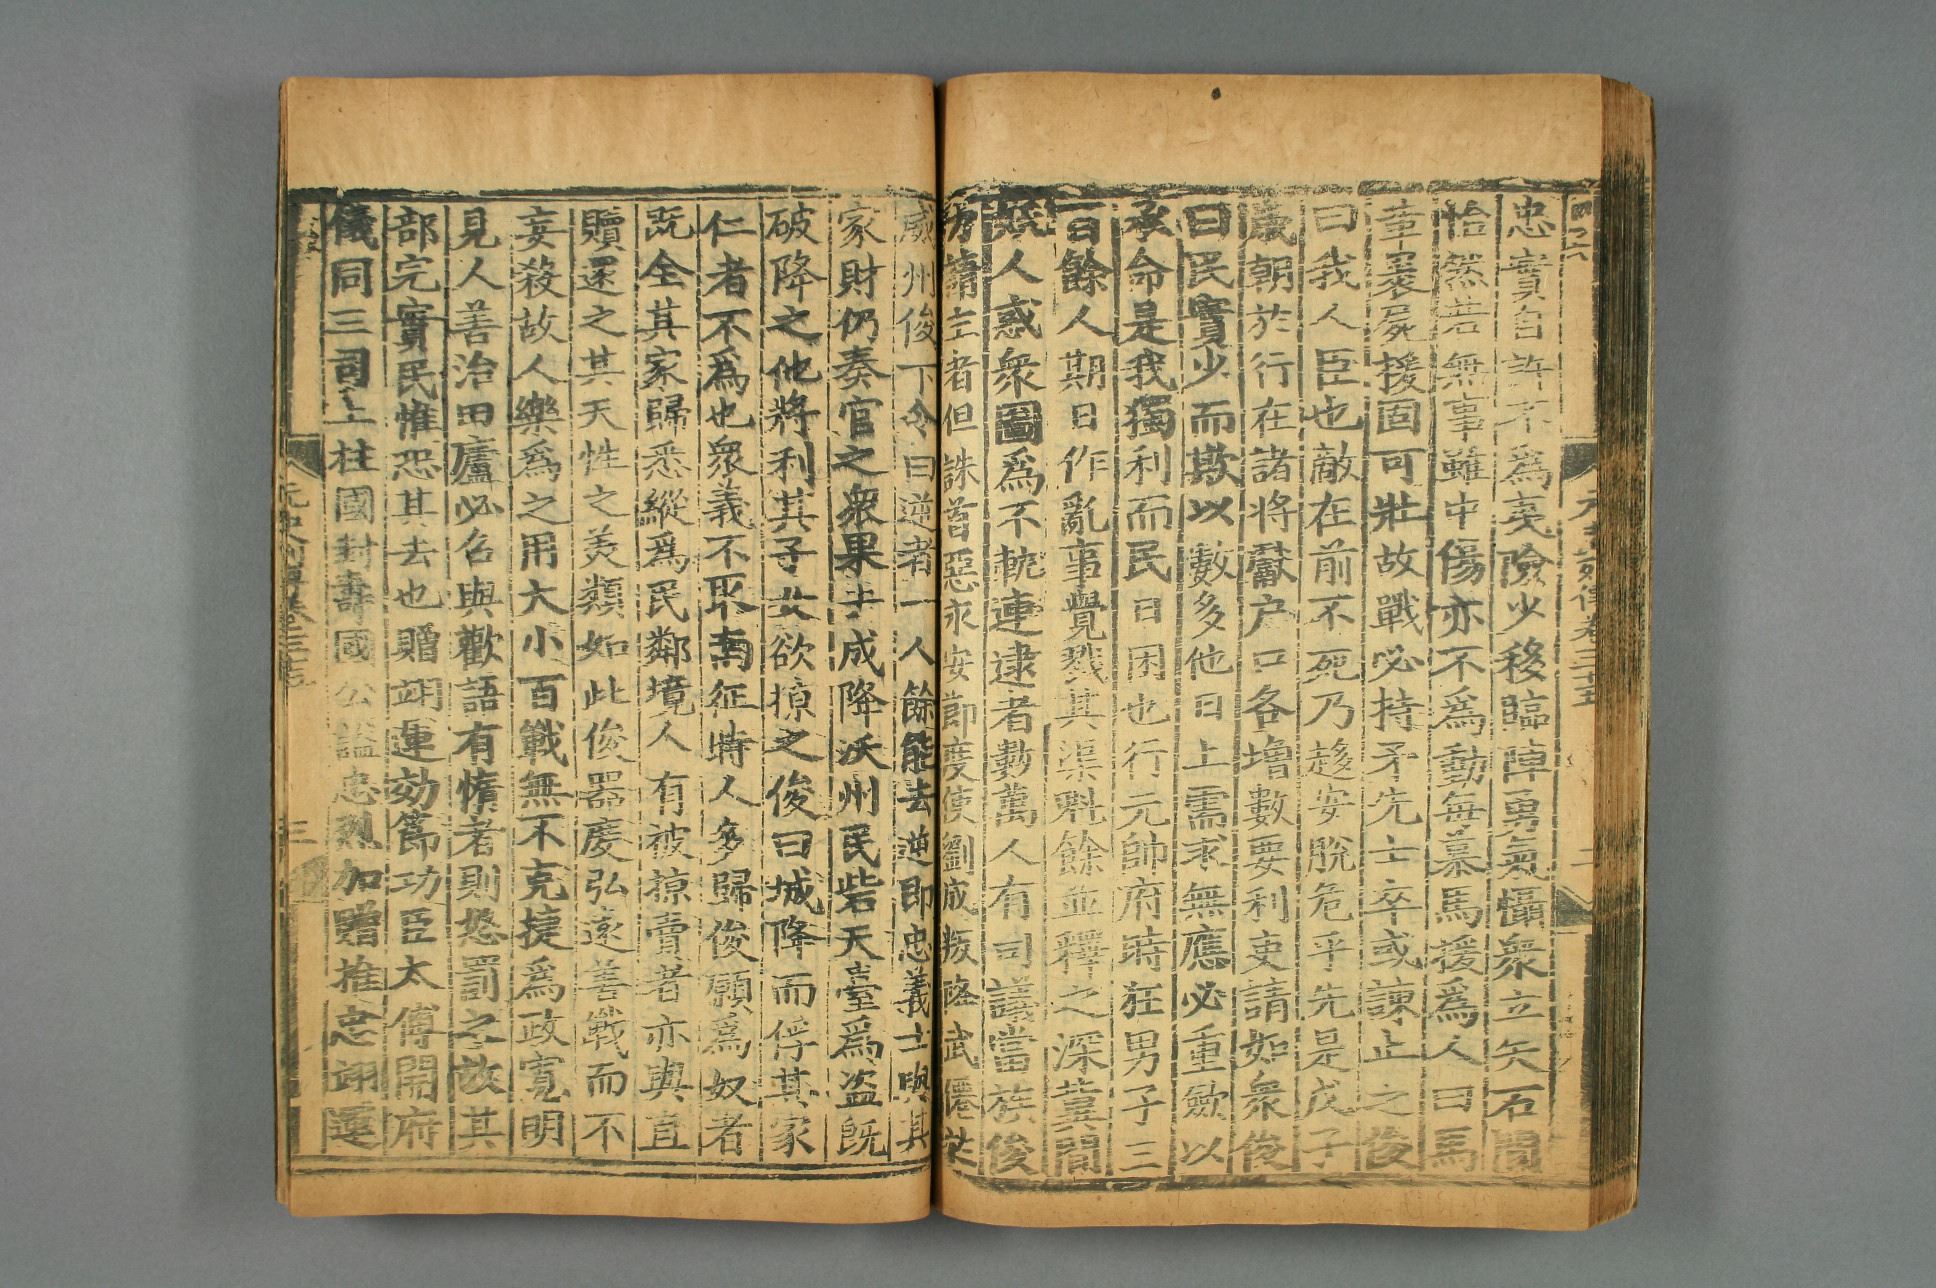 元史列傳卷三十五
二
忠實自許不爲夷險少移臨陣勇氣懾衆立矢石間
怡然若無事雖中傷亦不爲動每慕馬援爲人曰馬
革裹屍援固可壯故戰必持矛先士卒或諫止之俊
曰我人臣也敵在前不死乃趍安脫危乎先是戊子
歲朝於行在諸將獻户口各增數要利吏請如衆俊
曰民實少而欺以數多他日上需求無應必重斂以
承命是我獨利而民日困也行元帥府時狂男子三
百餘人期日作亂事覺戮其渠魁餘並釋之深冀間
妖人惑衆圖爲不軌連逮者數萬人有司議當族俊
力請主者但誅首惡永安節度使劉成叛略武僊於
威州俊下令曰逆者一人餘能去逆即忠義士與其
家財仍奏官之衆果去成降沃州民砦天臺爲盗旣
破降之他將利其子女欲掠之俊曰城降而俘其家
仁者不爲也衆義不取南征時人多歸俊願爲奴者
旣全其家歸悉縱爲民鄰境人有被掠賣者亦與直
贖還之其天性之美類如此俊器度弘遠善戰而不
妄殺故人樂爲之用大小百戰無不克捷爲政寬明
見人善治田廬必召與歡語有惰者則怒罰之故其
部完實民惟恐其去也贈翊運効節功臣太傅開府
儀同三司上柱國封壽國公謚忠烈加贈推忠翊運
三